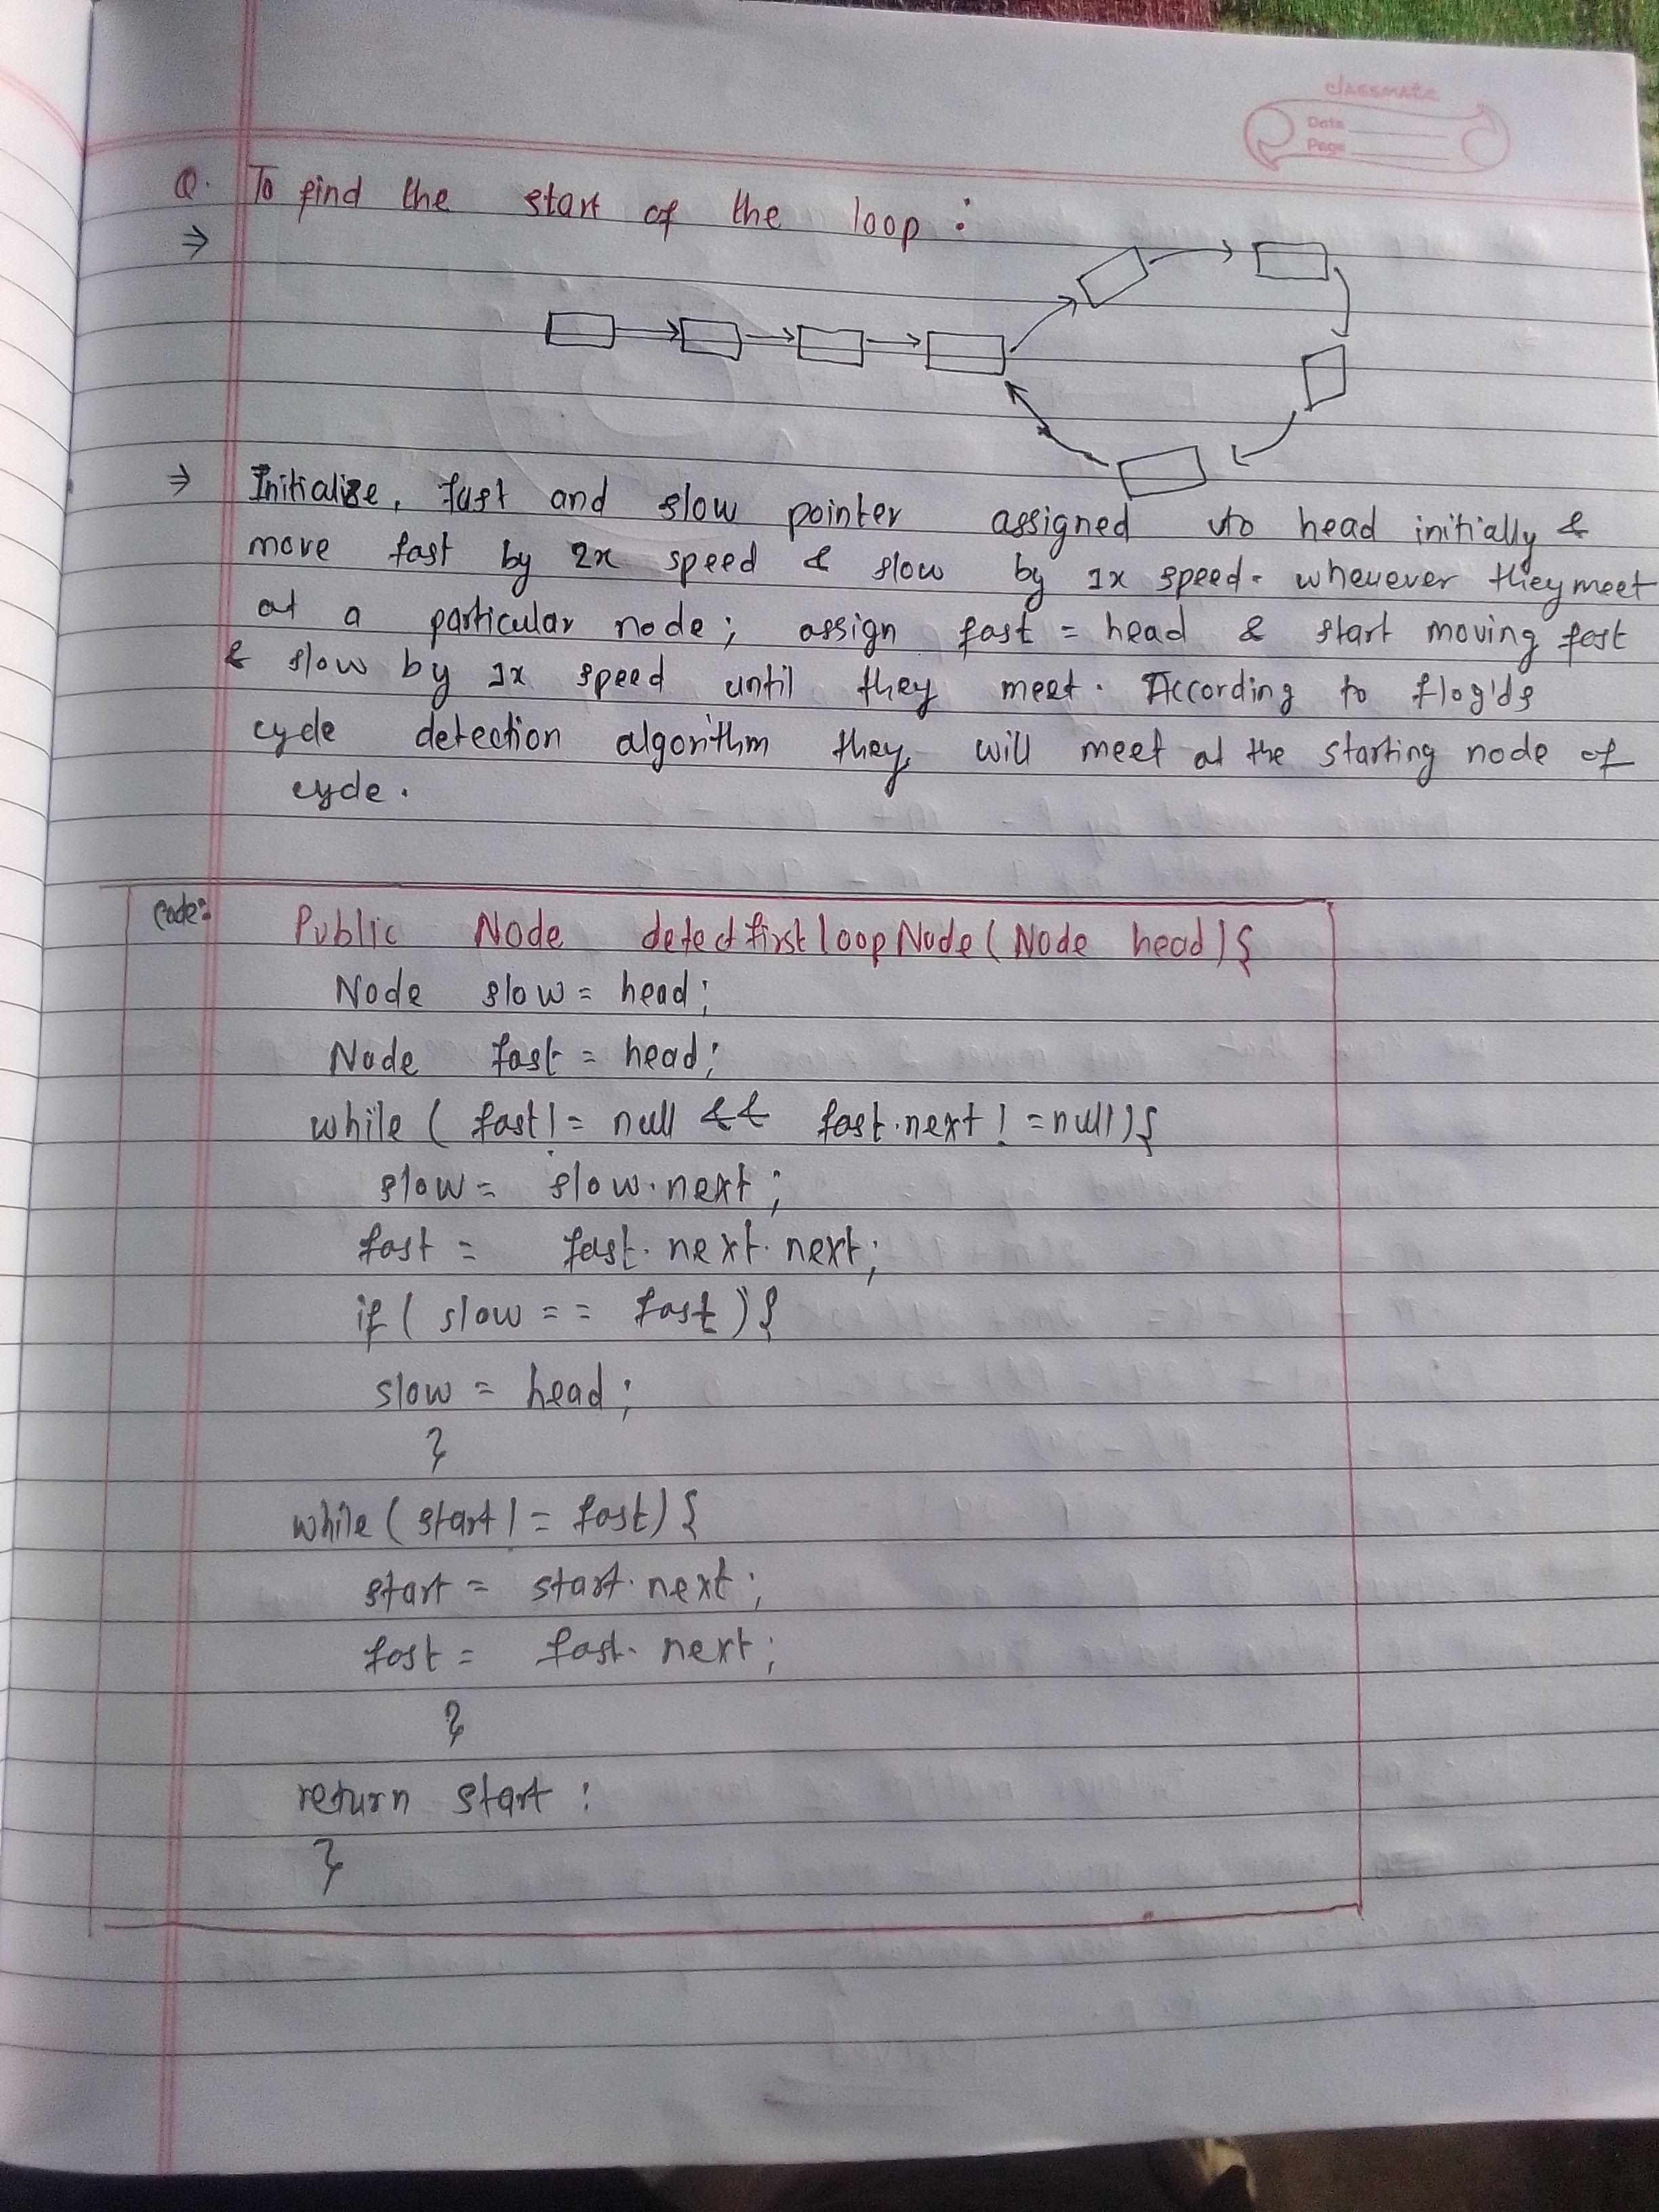 classmate
Date
Page
Q. To find the start of the loop :
⇒
⇒ Initialize, fast and slow pointer assigned to head initially &
move fast by 2x speed & slow by 1x speed. whenever they meet
at a particular node; assign fast = head & start moving fast
& slow by 1x speed until they meet. According to flog'ds
cycle detection algorithm they will meet at the starting node of
cycle.
Code:
Public Node detectfirstloopNode(Node head){
Node slow = head;
Node fast = head;
while ( fast != null && fast.next != null){
slow = slow.next;
fast = fast.next.next;
if ( slow == fast){
slow = head;
}
while ( start != fast) {
start = start.next;
fast = fast.next;
}
return start ;
}